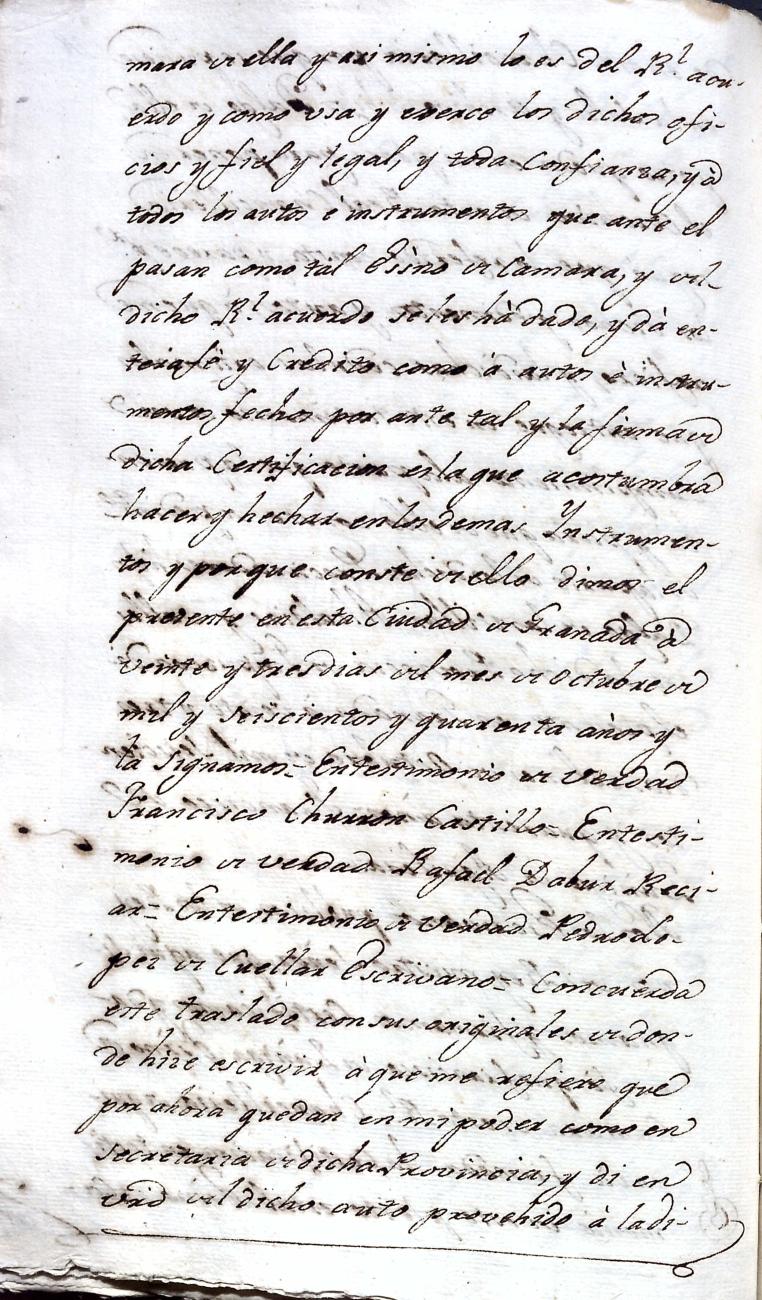 mara de ella y asi mismo lo es del Rl. acu-
erdo y como usa y exerce los dichos ofi-
cios y fiel y legal, y toda Confianza, y à
todos los autos è instrumentos que ante el
pasan como tal Essno de Camara, y del
dicho Rl. acuerdo seles hà dado, y dà en-
tera fè y Credito como à autos è instru-
mentos fechos por ante tal y la firma de
dicha Certificacion es la que acostumbra
hacer y hechar en los demas Ynstrumen-
tos y porque conste de ello dimos el
presente en esta Ciudad de Granada à
veinte y tres dias del mes de Octubre de
mil y seiscientos y quarenta años y
la signamos= Entestimonio de verdad
Francisco Churron Castillo= Entesti-
monio de verdad Rafael Dabur Reci-
ar= Entestimonio de verdad Pedro Lo-
pez de Cuellar Escrivano= Concuerda
este traslado con sus originales de don-
de hize escrivir à que me refiero que
por ahora quedan en mi poder como en
secretaria de dicha Provincia, y di en
vrd del dicho auto provehido à la di-